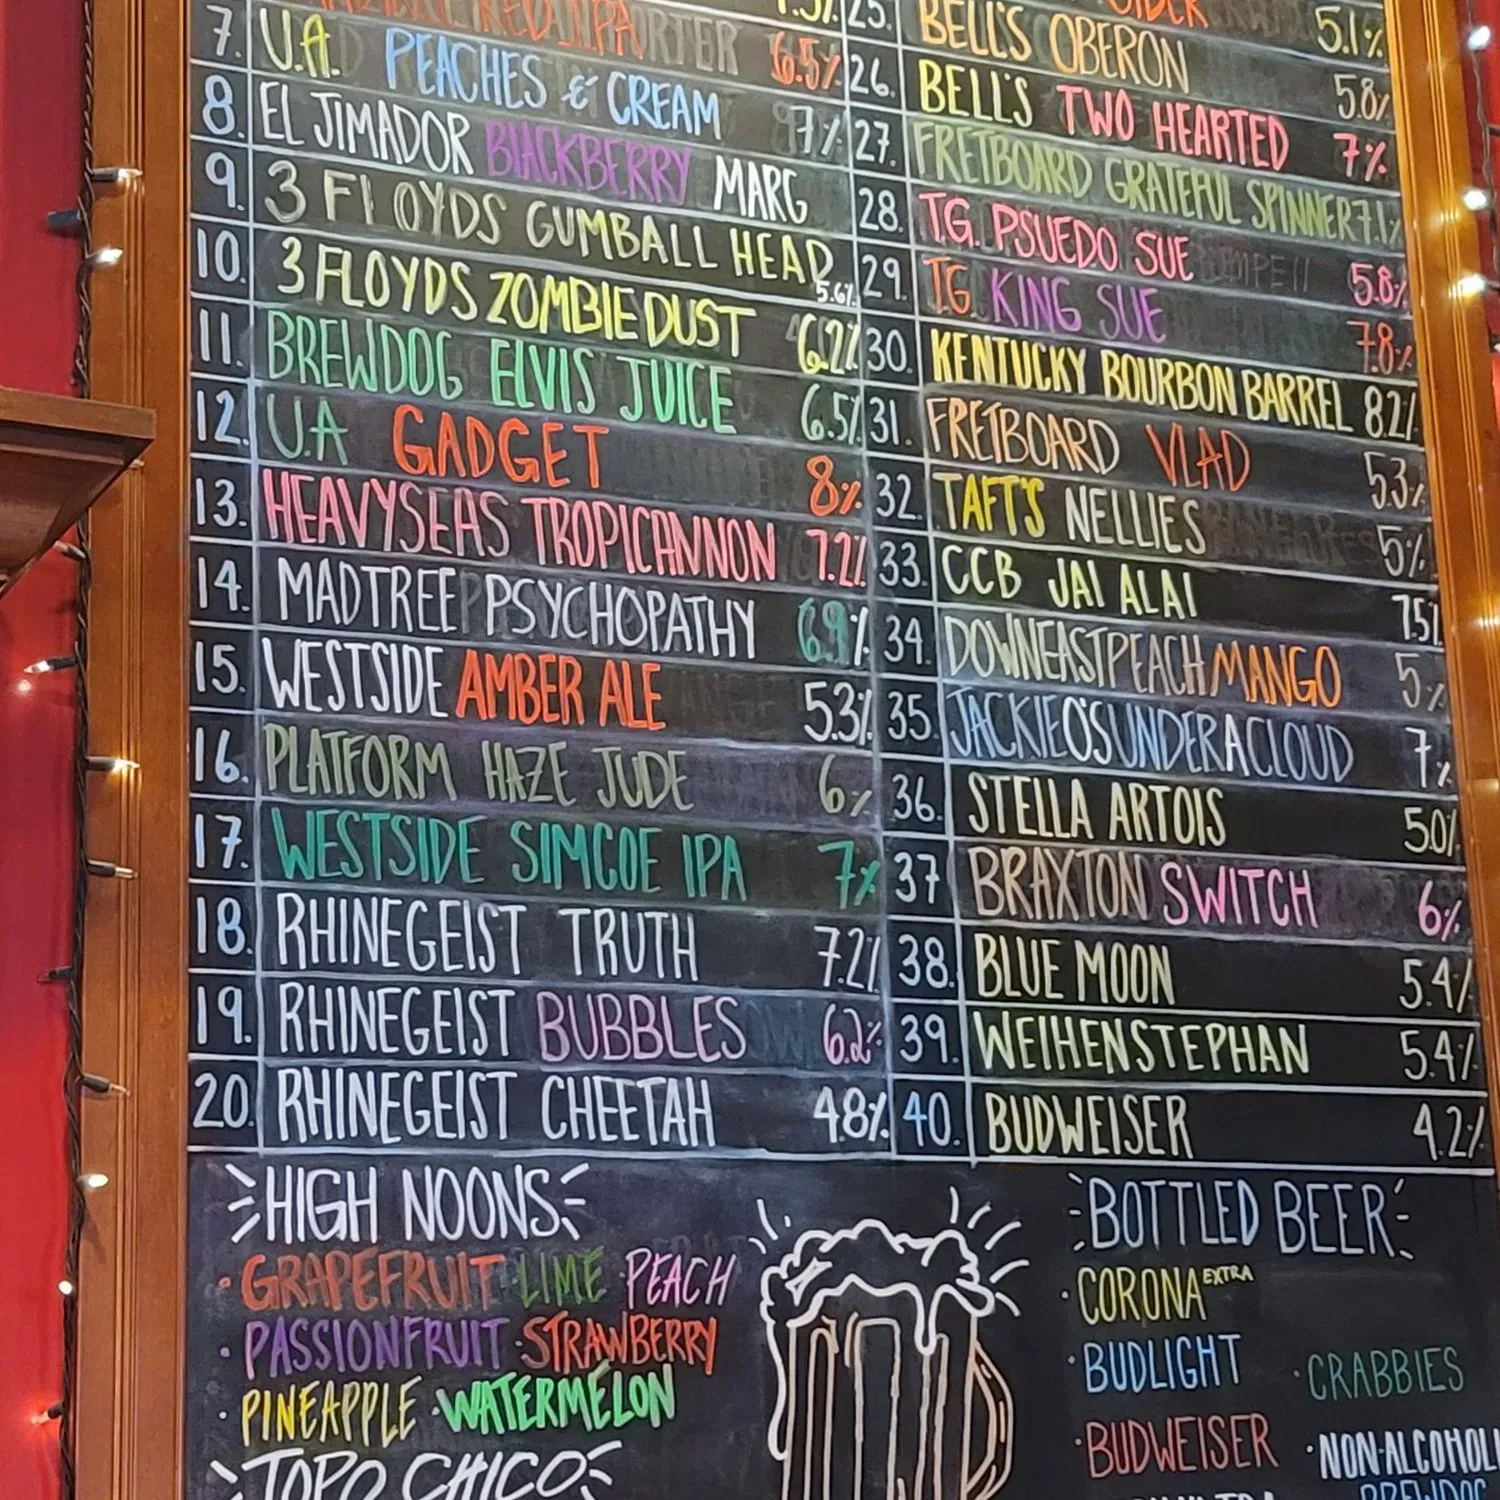 RED IPA 6.5%
7. U.A. PEACHES & CREAM 7%
8. EL JIMADOR BLACKBERRY MARG
9. 3 FLOYDS GUMBALL HEAD 5.6%
10. 3 FLOYDS ZOMBIE DUST 6.2%
11. BREWDOG ELVIS JUICE 6.5%
12. U.A GADGET 8%
13. HEAVYSEAS TROPICANNON 7.2%
14. MADTREE PSYCHOPATHY 6.9%
15. WESTSIDE AMBER ALE 5.3%
16. PLATFORM HAZE JUDE 6%
17. WESTSIDE SIMCOE IPA 7%
18. RHINEGEIST TRUTH 7.2%
19. RHINEGEIST BUBBLES 6.2%
20. RHINEGEIST CHEETAH 4.8%
CIDER 5.1%
25. BELL'S OBERON 5.8%
26. BELL'S TWO HEARTED 7%
27. FRETBOARD GRATEFUL SPINNER 7.1%
28. T.G. PSUEDO SUE 5.8%
29. T.G. KING SUE 7.8%
30. KENTUCKY BOURBON BARREL 8.2%
31. FRETBOARD VLAD 5.3%
32. TAFT'S NELLIES 5%
33. CCB JAI ALAI 7.5%
34. DOWNEAST PEACH MANGO 5%
35. JACKIE O'S UNDER A CLOUD 7%
36. STELLA ARTOIS 5.0%
37 BRAXTON SWITCH 6%
38. BLUE MOON 5.4%
39. WEIHENSTEPHAN 5.4%
40. BUDWEISER 4.2%
HIGH NOONS
·GRAPEFRUIT ·LIME ·PEACH
·PASSIONFRUIT ·STRAWBERRY
·PINEAPPLE ·WATERMELON
TOPO CHICO
BOTTLED BEER
·CORONA EXTRA
·BUDLIGHT
·CRABBIES
·BUDWEISER
·NON-ALCOHOLI
BREWDOG